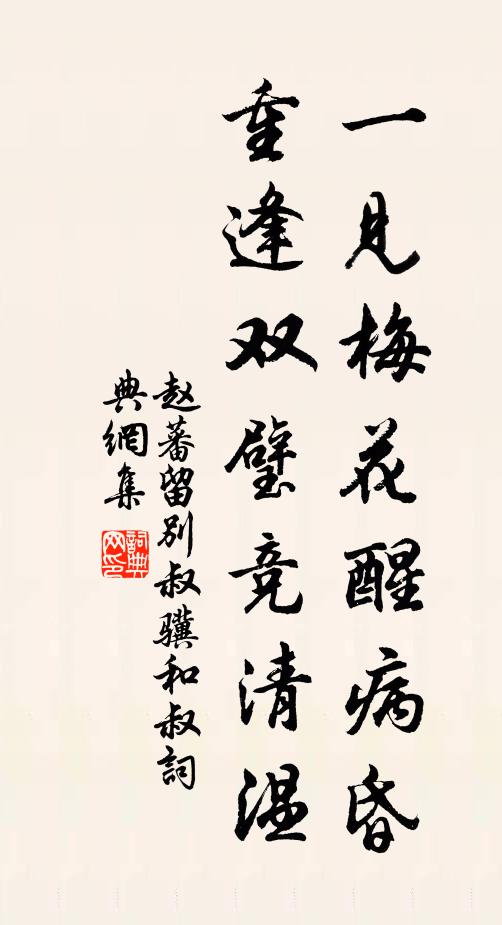 一见梅花醒病昏
重逢双璧竞清温
赵蕃留别叔骥和叔词
典網集
詞典网印